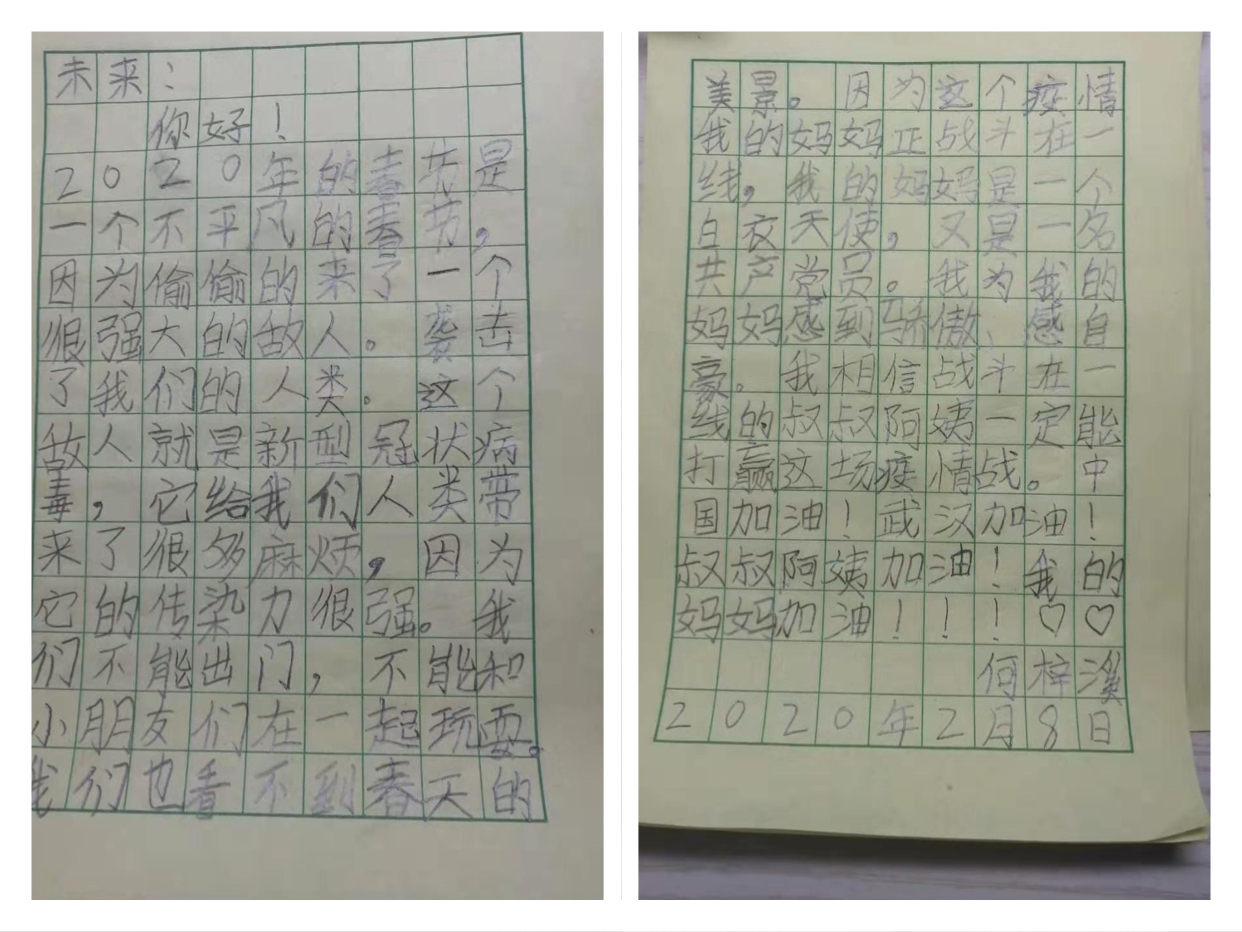 未来：
你好！
2020年的春节是
一个不平凡的春节，
因为偷偷的来了一个
很强大的敌人。袭击
了我们的人类。这个
敌人就是新型冠状病
毒，它给我们人类带
来了很多麻烦，因为
它的传染力很强。我
们不能出门，不能和
小朋友们在一起玩耍。
我们也看不到春天的
美景。因为这个疫情
我的妈妈正战斗在一
线，我的妈妈是一个
白衣天使，又是一名
共产党员。我为我的
妈妈感到骄傲、感自
豪。我相信战斗在一
线的叔叔阿姨一定能
打赢这场疫情战。中
国加油！武汉加油！
叔叔阿姨加油！我的
妈妈加油！！！♡♡
何梓溪
2020年2月8日